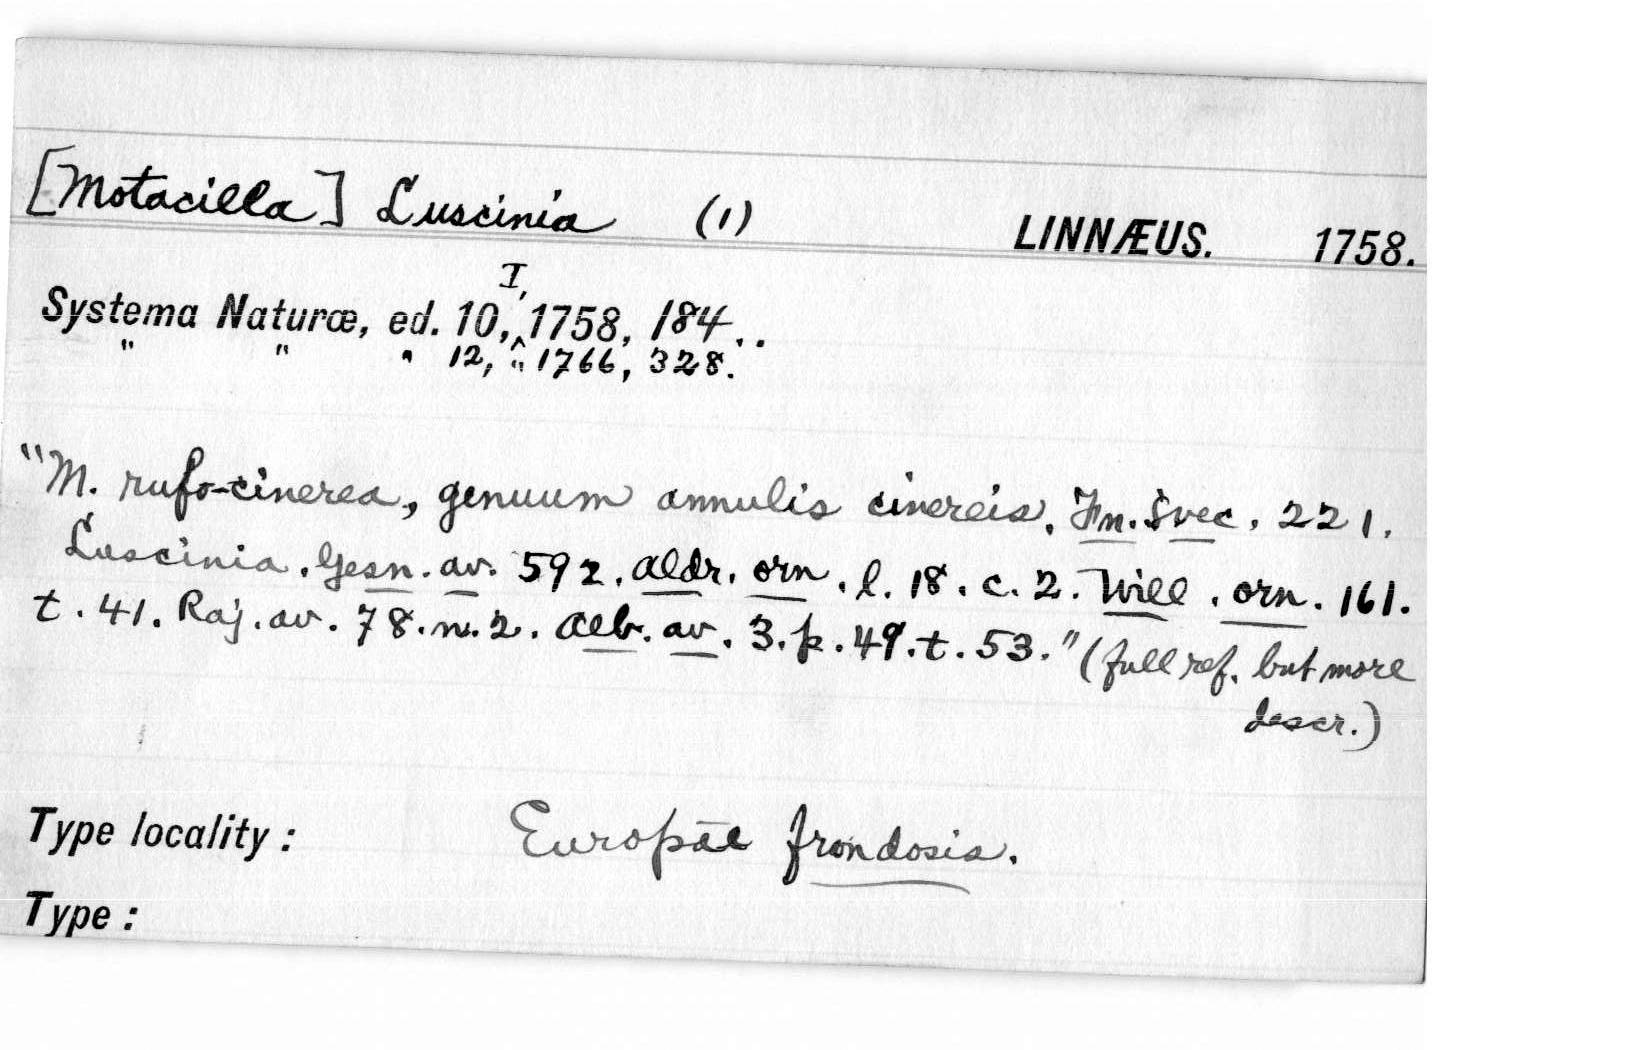 [Motacilla] Luscinia (1) LINNÆUS. 1758.
I,
Systema Naturæ, ed. 10,^1758, 184..
" " " 12, " 1766, 328.
"M. rufo-cinerea, genuum annulis cinereis. Fn. Svec. 221.
Luscinia. Gesn. av. 592. Aldr. orn. l. 18. c. 2. Will. orn. 161.
t. 41. Raj. av. 78. n. 2. Alb. av. 3. p. 49. t. 53." (full ref. but more
descr.)
Type locality: Europæ frondosis.
Type: